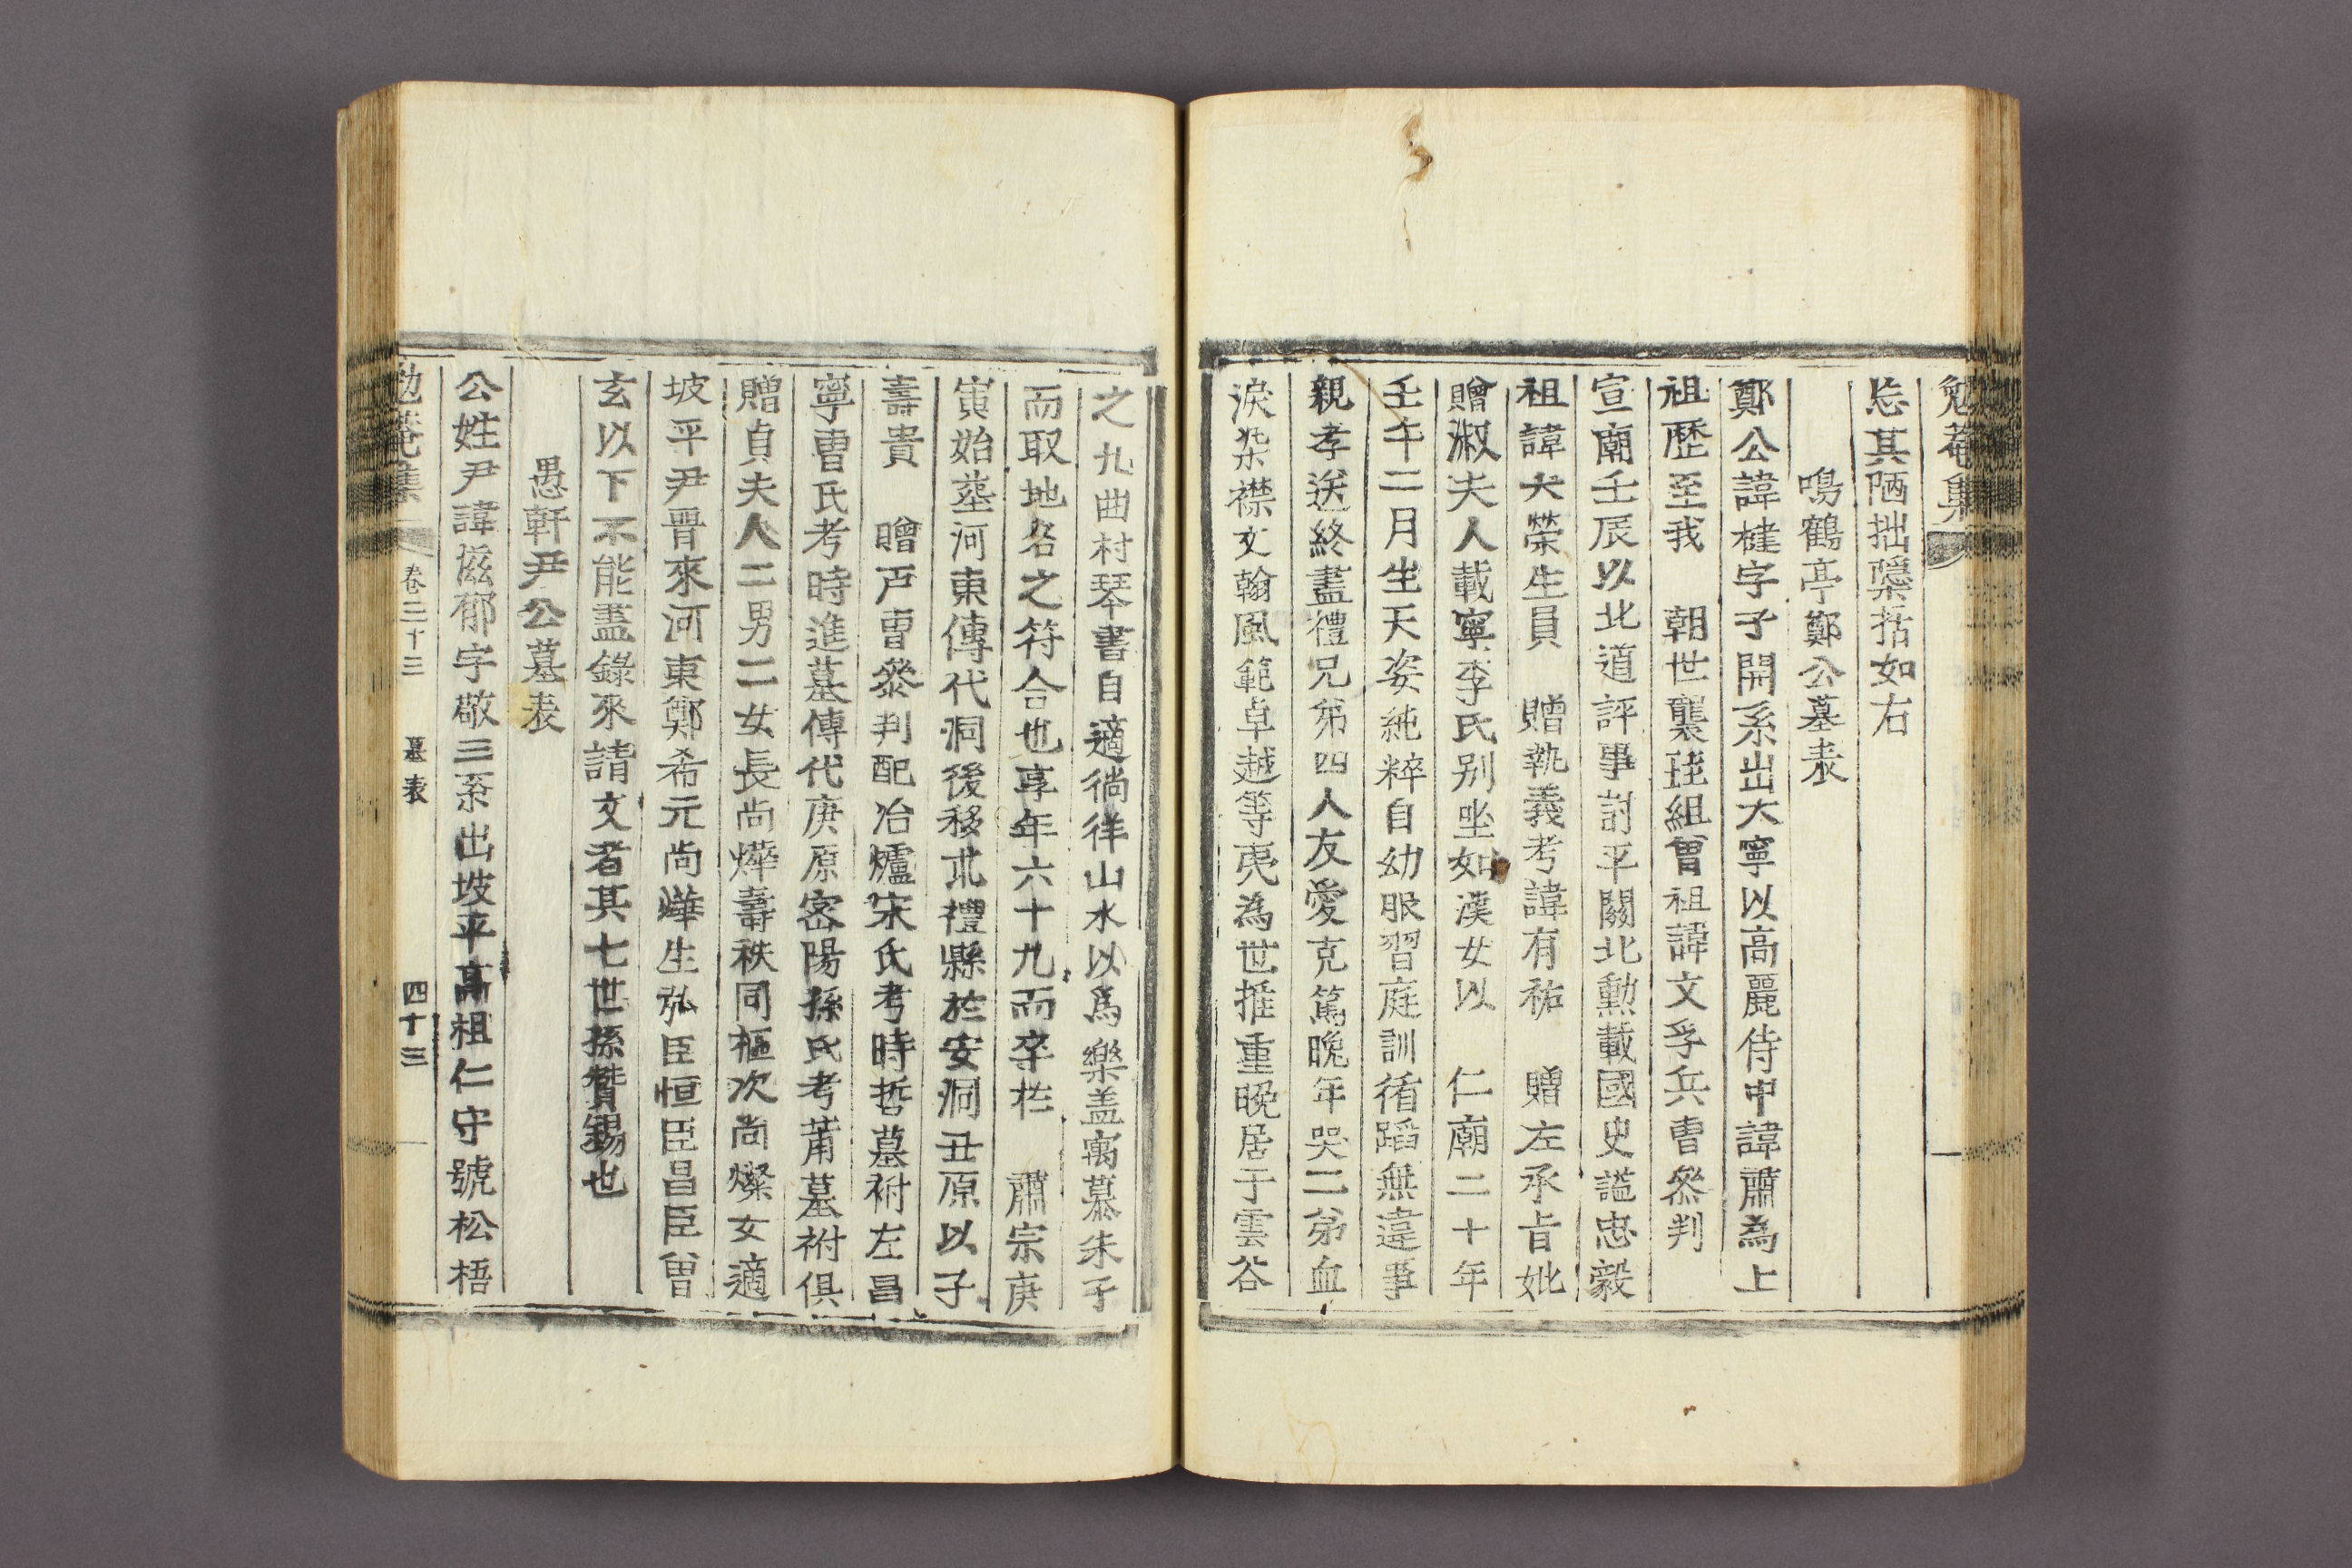 勉菴集
忘其陋拙檃括如右
鳴鶴亭鄭公墓表
鄭公諱楗字子開系出大寧以高麗侍中諱肅為上
祖歷至我 朝世襲珪組曾祖諱文孚兵曹參判
宣廟壬辰以北道評事討平關北勳載國史謚忠毅
祖諱大榮生員 贈執義考諱有祐 贈左承旨妣
贈淑夫人載寧李氏別坐如漢女以 仁廟二十年
壬午二月生天姿純粹自幼服習庭訓循蹈無違事
親孝送終盡禮兄弟四人友愛克篤晚年哭二弟血
淚染襟文翰風範卓越等夷為世推重晚居于雲谷
之九曲村琴書自適徜徉山水以爲樂盖寓慕朱子
而取地名之符合也享年六十九而卒在 肅宗庚
寅始葬河東傳代洞後移丘禮縣於安洞丑原以子
壽貴 贈戶曹參判配冶爐宋氏考時哲墓祔左昌
寧曺氏考時進墓傳代庚原密陽孫氏考莆墓祔俱
贈貞夫人二男二女長尚燁壽秩同樞次尚燦女適
坡平尹晋來河東鄭希元尚燁生弘臣恒臣昌臣曾
玄以下不能盡錄來請文者其七世孫賛錫也
愚軒尹公墓表
公姓尹諱滋郁字敬三系出坡平高祖仁守號松梧
勉菴集 卷三十三 墓表 四十三